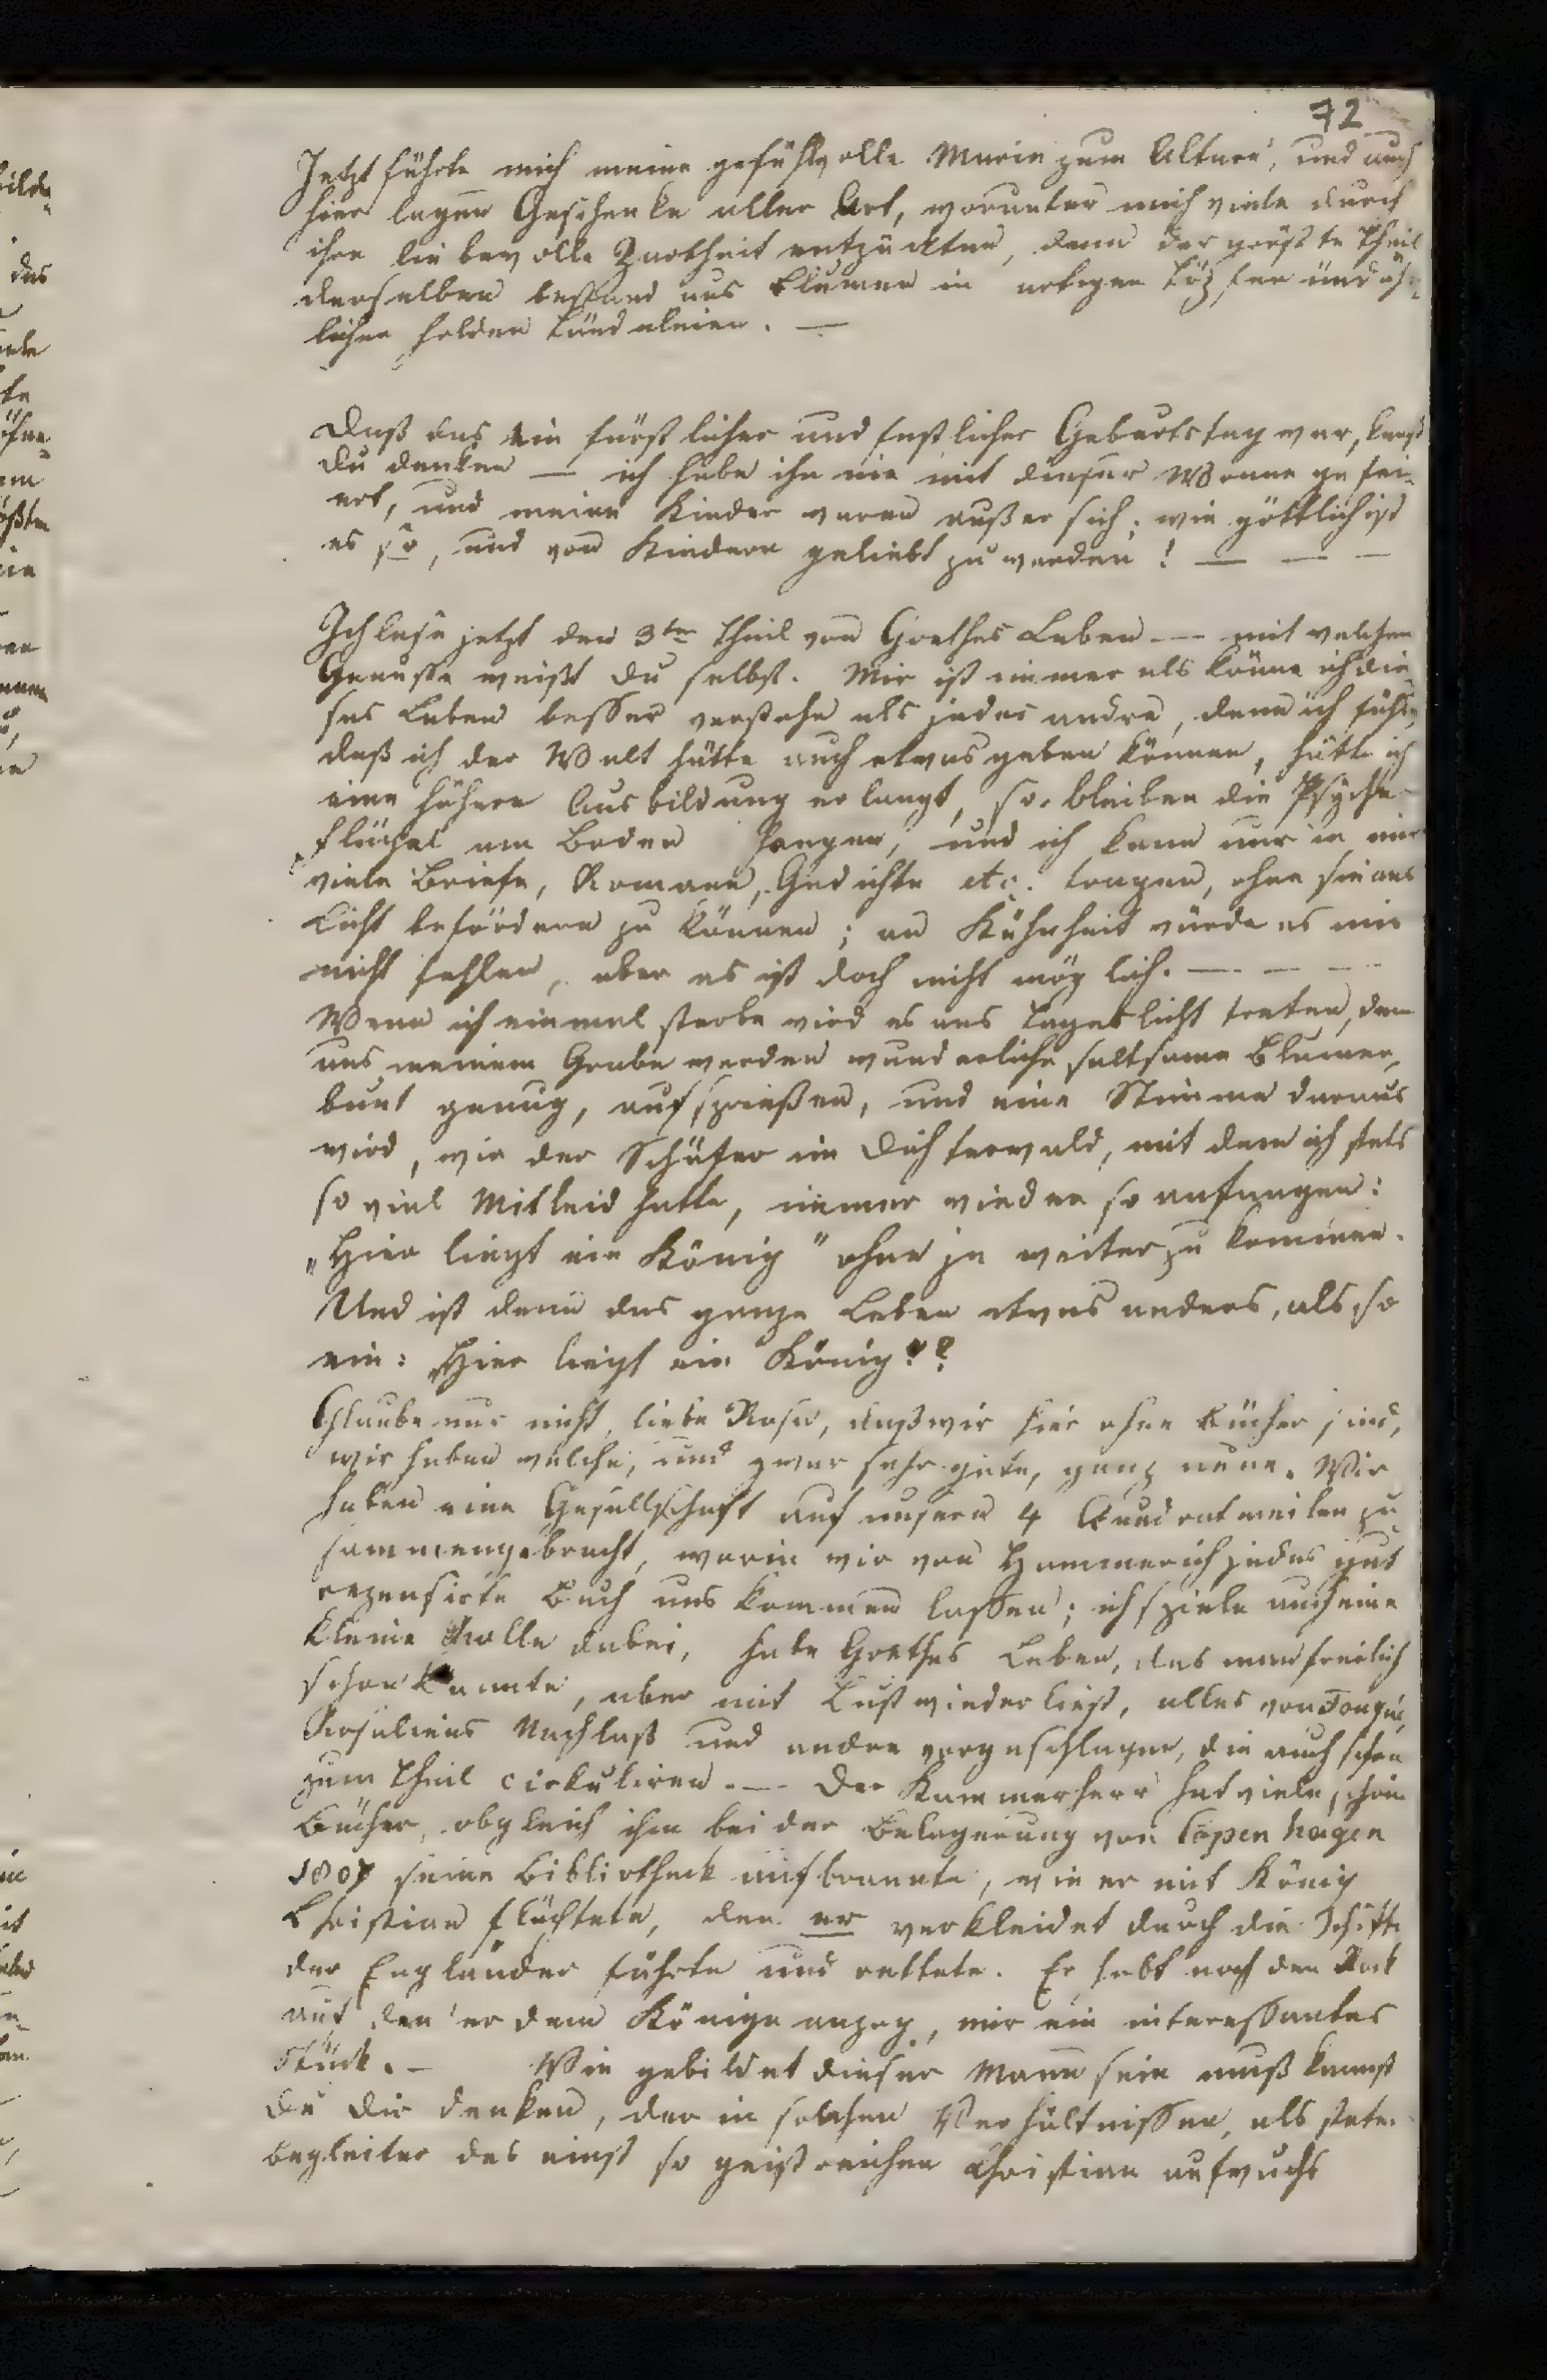 72
Jetzt führte mich meine gefühlvolle Marie zum Altare, und auch
hier lagen Geschenke aller Art, worunter mich viele durch
ihre liebevolle Zartheit entzückten, denn der größte Theil
derselben bestand aus Blumen in artigen Töpfen und ähn-
lichen holden Tändeleien. —
Daß das ein fürstlicher und festlicher Geburtstag war, kanst
Du denken — ich habe ihn nie mit dieser Wonne gefei-
ert, und meine Kinder waren außer sich; wie göttlich ist
es so, und von Kindern geliebt zu werden! — — —
Ich lese jetzt den 3ten Theil von Goethes Leben — mit welchem
Genusse weißt Du selbst. Mir ist immer als könne ich die-
ses Leben besser verstehn als jedes andre, denn ich fühle,
daß ich der Welt hätte auch etwas geben können, hätte ich
eine höhere Ausbildung erlangt, so bleiben die Psyche
flüchel am Boden hangen, und ich kann nur in mir
viele Briefe, Romane, Gedichte etc. tragen, ohne sie ans
Licht befördern zu können; an Kühnheit würde es mir
nicht fehlen, aber es ist doch nicht möglich. — — —
Wenn ich einmal sterbe wird es ans Tageslicht treten, denn
aus meinem Grabe werden wunderliche seltsame Blumen,
bunt genug, aufsprießen, und eine Stimme daraus
wird, wie der Schäfer im Dichterwald, mit dem ich stets
so viel Mitleid hatte, immer wieder so anfangen:
„Hier liegt ein König" ohne je weiter zu kommen.
Und ist denn das ganze Leben etwas anders, als so
ein: „Hier liegt ein König!"?
Glaube nur nicht, liebe Rosa, daß wir hier ohne Bücher sind,
wir haben welche, und zwar sehr gute, ganz neue. Wir
haben eine Gesellschaft auf unsern 4 Quadratmeilen zu
sammengebracht, worin wir von Hammerich jedes gut
rezensirte Buch uns kommen lassen; ich spiele auch eine
kleine Rolle dabei, habe Goethes Leben, das man freilich
schon kannte, aber mit Lust wieder liest, alles von Fouqué,
Rosaliens Nachlaß und andre vorgeschlagen, die auch schon
zum Theil cirkuliren. — Der Kammerherr hat viele schöne
Bücher, obgleich ihm bei der Belagerung von Copenhagen
1807 seine Bibliotheck aufbrannte, wie er mit König
Christian flüchtete, den er verkleidet durch die Schiffe
der Engländer führte und rettete. Er hebt noch den Rock
auf den er dem Könige anzog, mir ein interessantes
Stück. — Wie gebildet dieser Mann sein muß kannst
Du Dir denken, der in solchen Verhältnissen, als steter
Begleiter des einst so geistreichen Christian aufwuchs